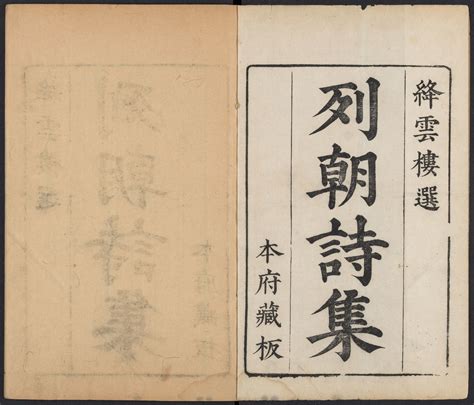 絳雲樓選
列朝詩集
本府藏板